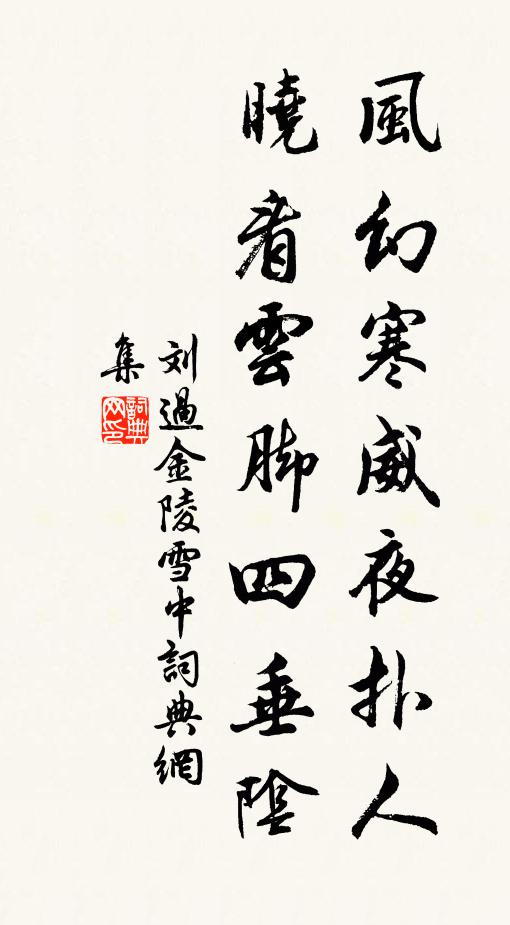 風幻寒威夜扑人
曉看雲脚四垂陰
刘過金陵雪中詞典網
集
詞典
网印